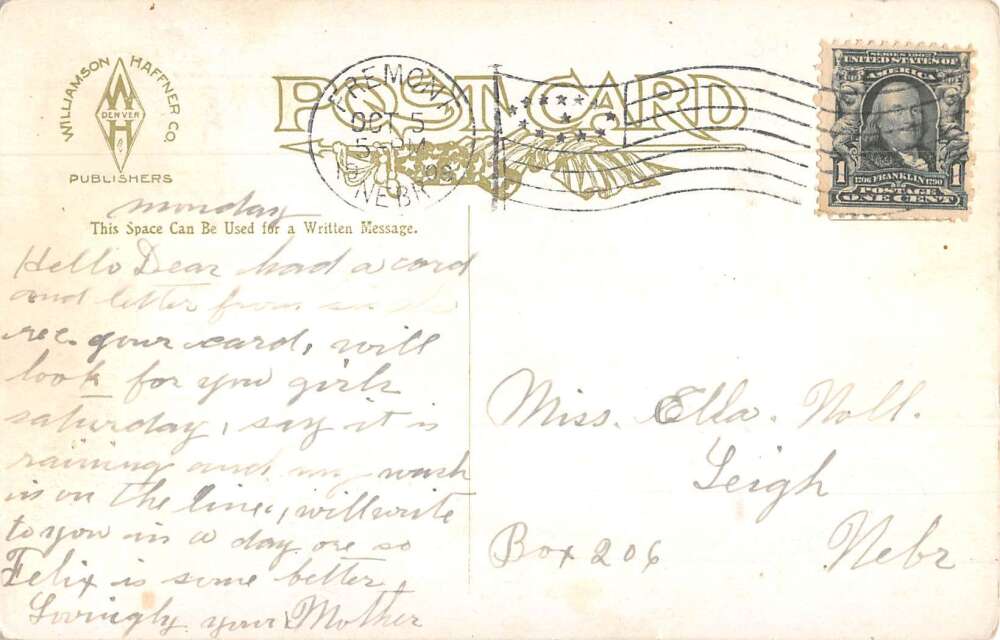 WILLIAMSON HAFFNER CO.
W
DENVER
H
PUBLISHERS
POST CARD
FREMONT
OCT 5
5 - PM
NEBR
SERIES 1902
UNITED STATES OF
AMERICA
1 1706 FRANKLIN 1790 1
POSTAGE
ONE CENT
monday
This Space Can Be Used for a Written Message.
Hello Dear had a card
and letter from
rec. your card, will
look for you girls
saturday, say it is
raining and my wash
is on the line, will write
to you in a day ore so
Felix is some better,
Lovingly your Mother
Miss. Ella. Noll.
Leigh
Box 206 Nebr